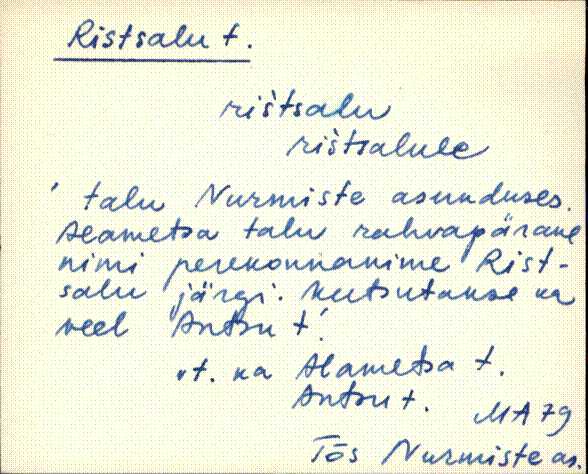 Ristsalu t.
rištsalu
rištsalule
' talu Nurmiste asunduses.
Alametsa talu rahvapärane
nimi perekonnanime Rist-
salu järgi. Kutsutakse ka
veel Antsu t.'
vt. ka Alametsa t.
Antsu t.
MA 79
Tõs Nurmiste as.